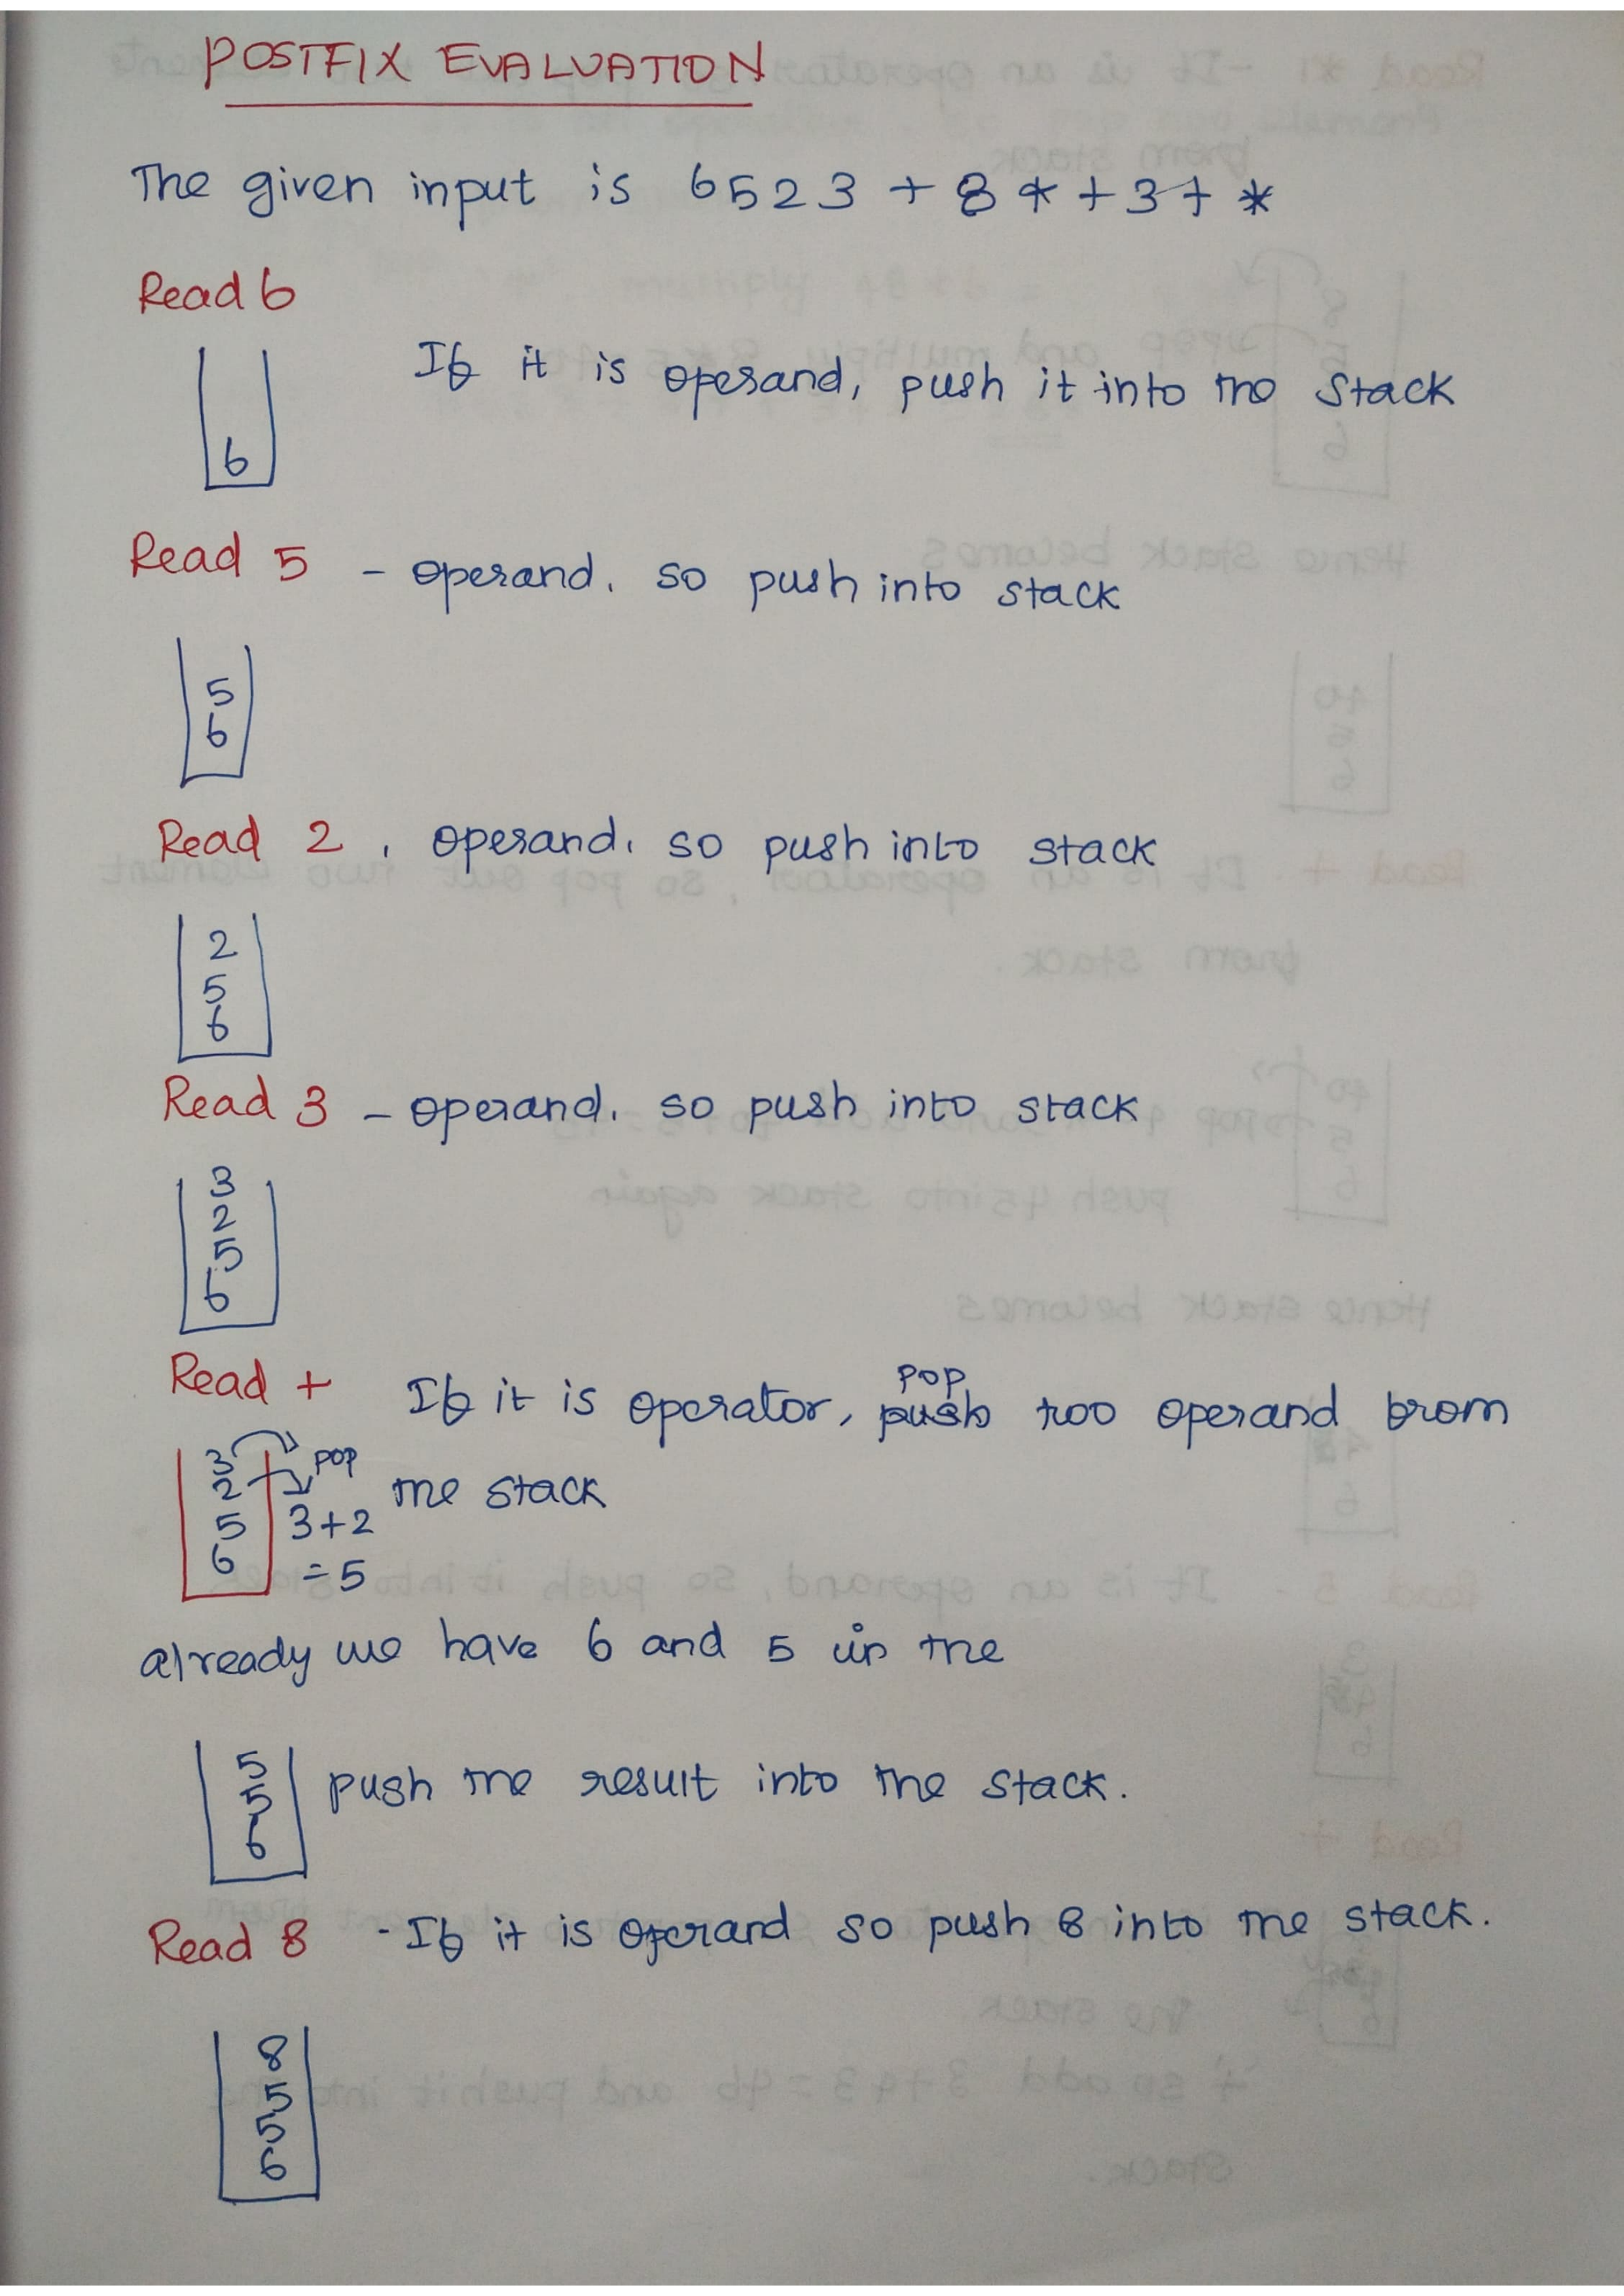 POSTFIX EVALUATION
The given input is 6523 + 8 * + 3 + *
Read 6
If it is operand, push it into the Stack
6
Read 5 - operand. so push into stack
5
6
Read 2, operand. so push into stack
2
5
6
Read 3 - operand. so push into stack
3
2
5
6
Read + If it is operator, push pop two operand from
the stack
3 pop
2
5 3+2
6 =5
already we have 6 and 5 in the
5
5 push the result into the stack.
6
Read 8 - If it is operand so push 8 into the stack.
8
5
5
6